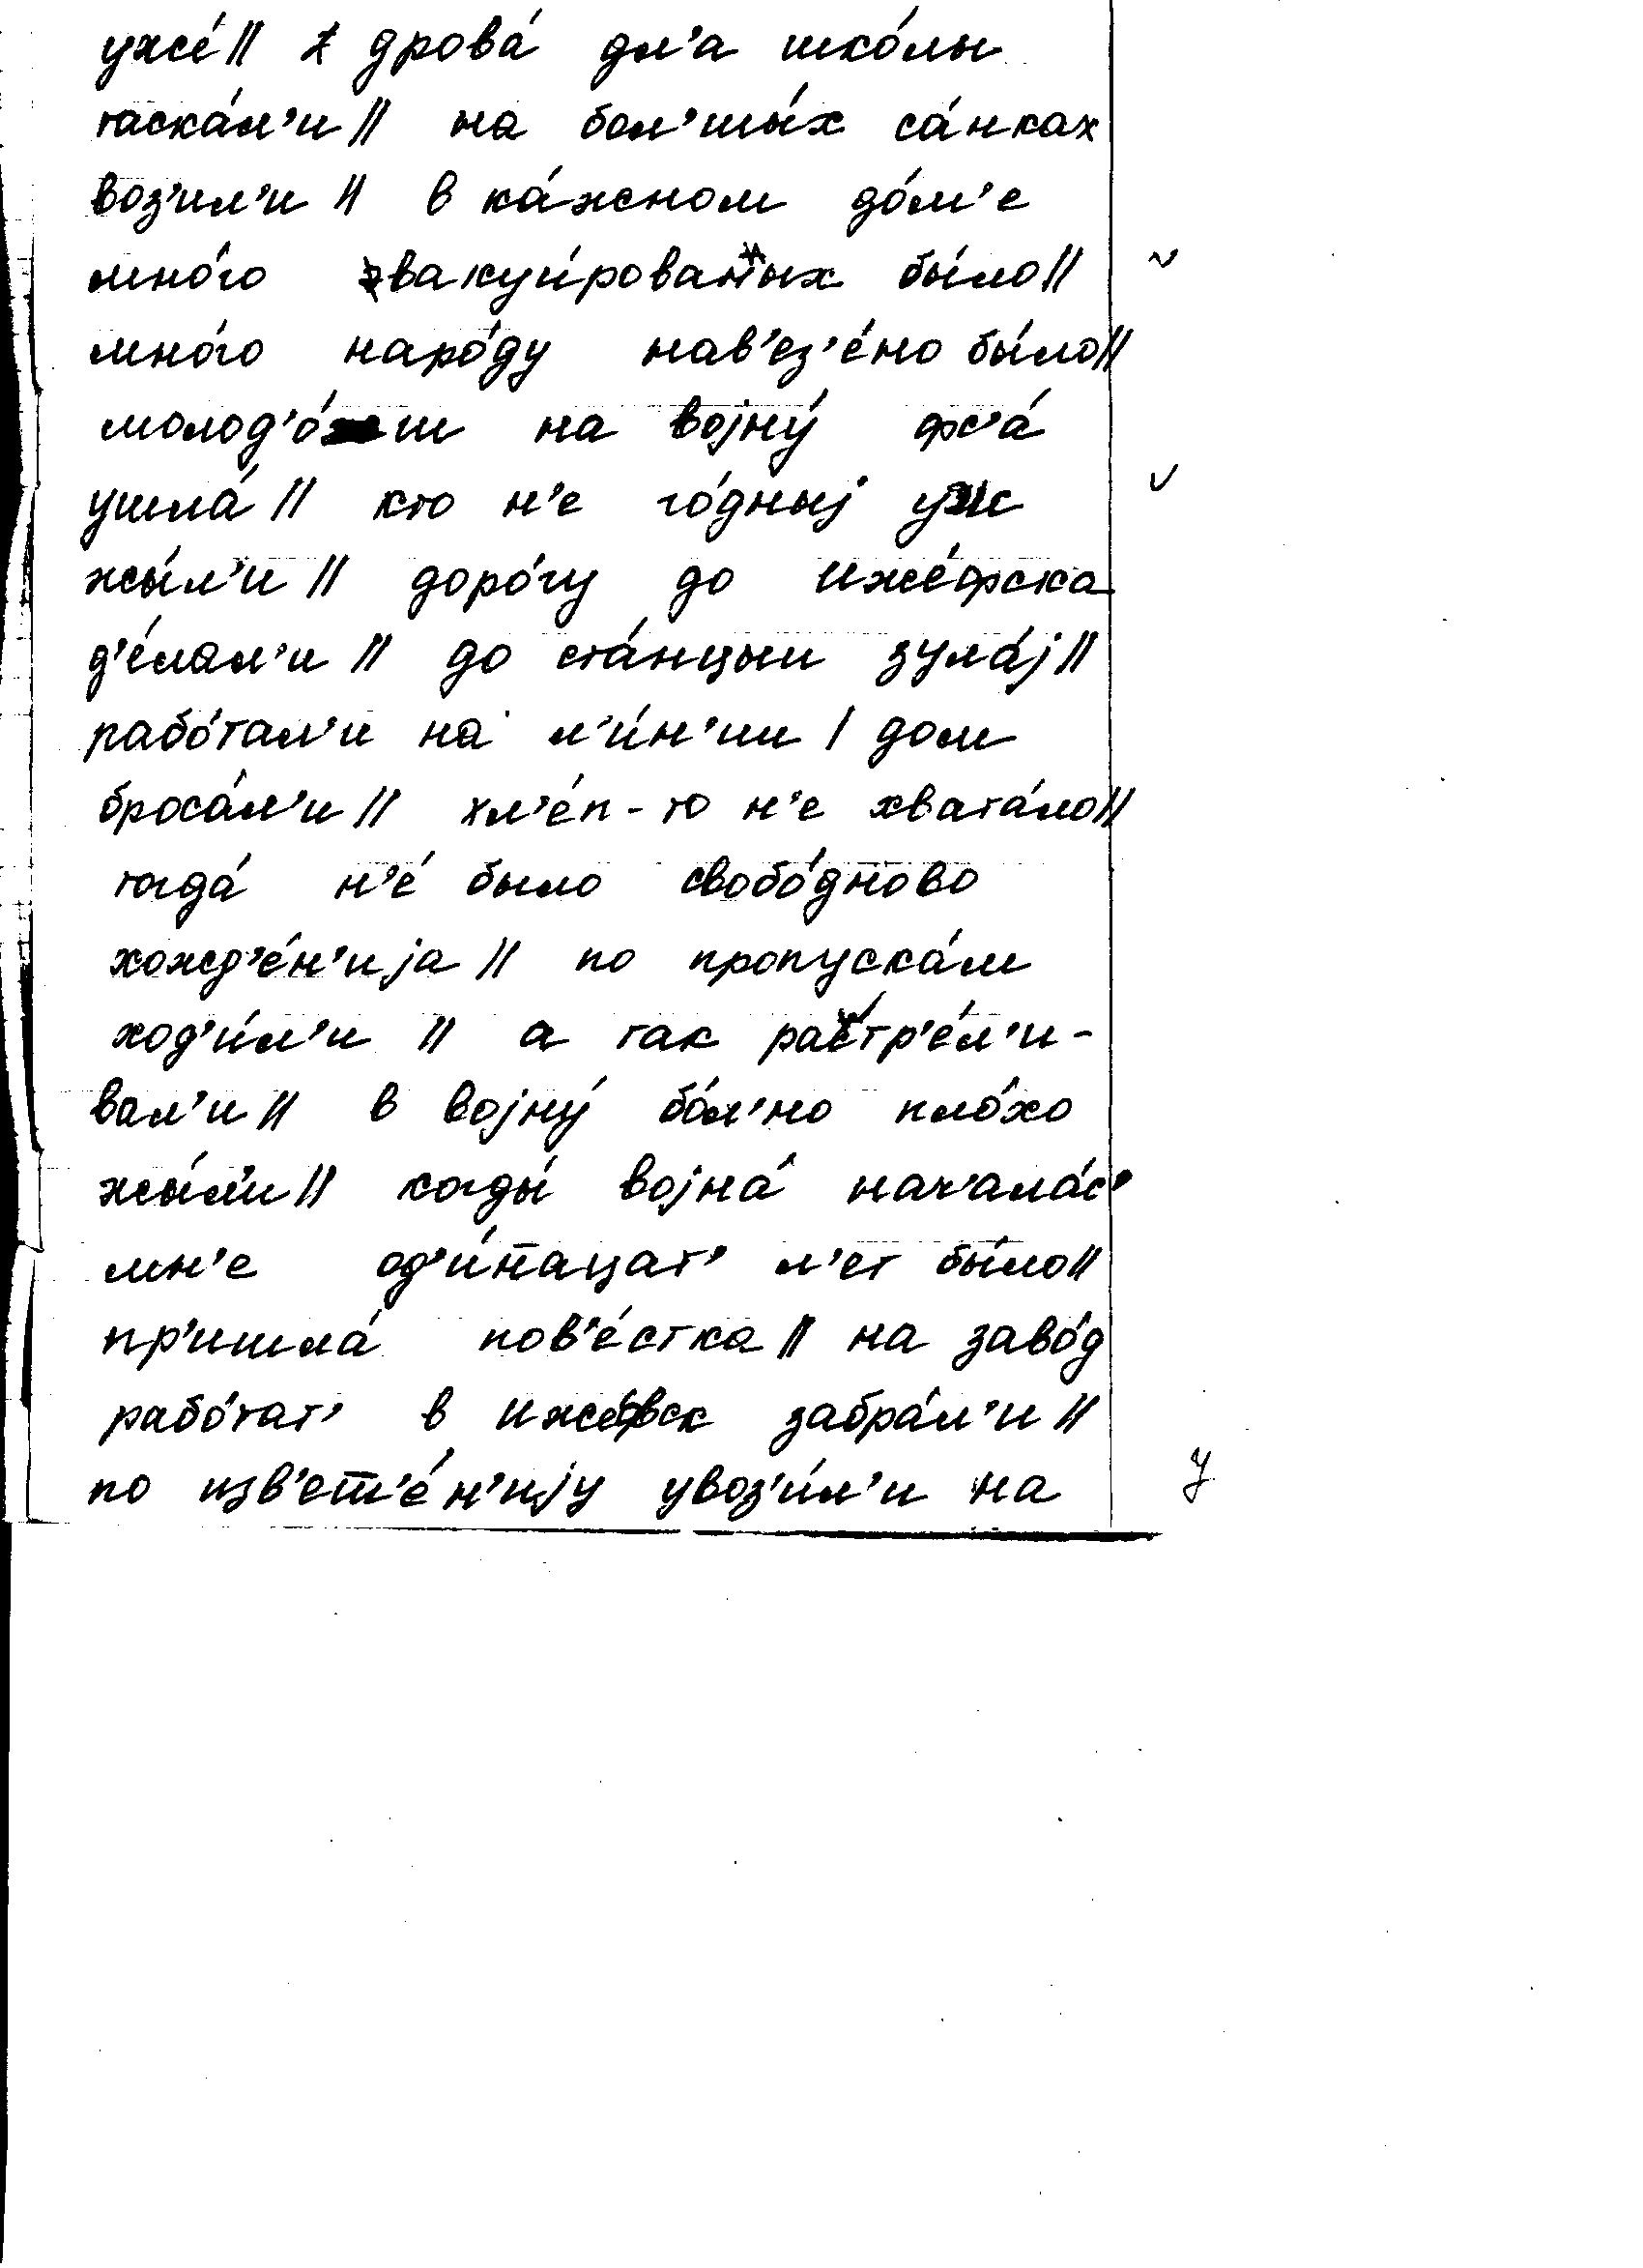 ужé|| дровá дл'а шкóлы
таскáл'и|| на бол'шы́х сáнках
воз'ил'и || в кáжном дóм'е
мнóго эвакуи́рованых бы́ло||
мнóго нарóду нав'ез'éно бы́ло||
молод'óш на војну́ фс'á
ушлá || кто н'е гóдныј уж
жы́л'и || дорóгу до ижéфска
д'éлал'и || до стáнцыи зулáј||
рабóтал'и на л'и́н'ии | дом
бросáл'и || хл'éп-то н'е хватáло||
тогдá н'é было свобóдново
хожд'éн'ија || по пропускáм
ход'и́л'и || а так растр'éл'и-
вал'и || в војну́ бóл'но плóхо
жы́л'и || когды́ војнá нач'алáс'
мн'е од'и́нацат' л'ет бы́ло||
пр'ишлá пов'éстка || на завóд
рабóтат' в ижéвск забрáл'и ||
по изв'ет'éн'ију увоз'и́л'и на
у